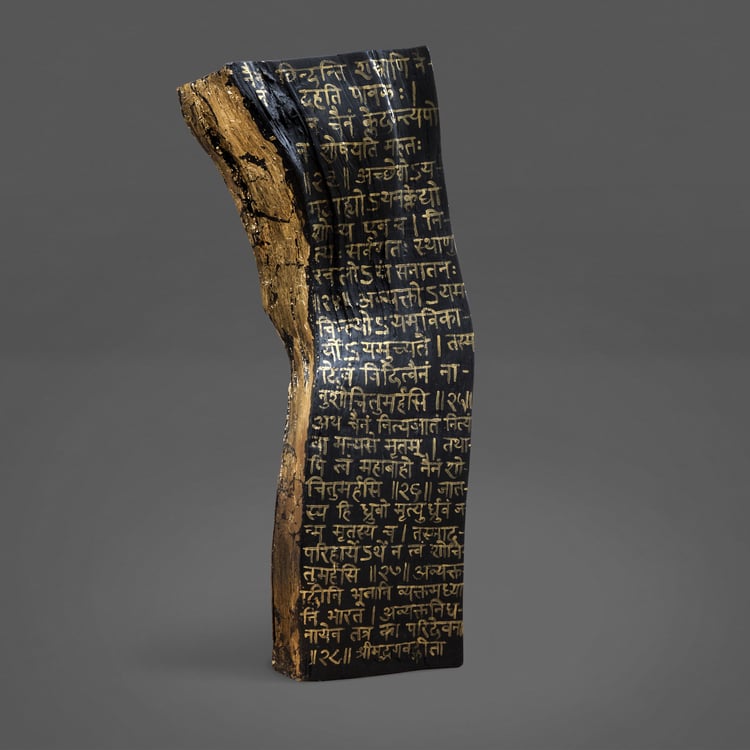 छिन्दन्ति शस्त्राणि नै-
दहति पावकः ।
न चैनं क्लेदयन्त्यपो
न शोषयति मारुतः
॥२३॥ अच्छेद्योऽय-
मदाह्योऽयमक्लेद्यो
शोष्य एव च । नि-
त्यः सर्वगतः स्थाणु
रचलोऽयं सनातनः
॥२४॥ अव्यक्तोऽयम
चिन्त्योऽयमविका-
र्योऽयमुच्यते । तस्म
देवं विदित्वैनं ना-
नुशोचितुमर्हसि ॥२५॥
अथ चैनं नित्यजातं नित्यं
वा मन्यसे मृतम् । तथा-
पि त्वं महाबाहो नैनं शो-
चितुमर्हसि ॥२६॥ जात-
स्य हि ध्रुवो मृत्युर्ध्रुवं ज
न्म मृतस्य च । तस्माद-
परिहार्येऽर्थे न त्वं शोचि-
तुमर्हसि ॥२७॥ अव्यक्त
दीनि भूतानि व्यक्तमध्या
नि भारत । अव्यक्तनिध-
नायेव तत्र का परिदेवना
॥२८॥ श्रीमद्भगवद्गीता